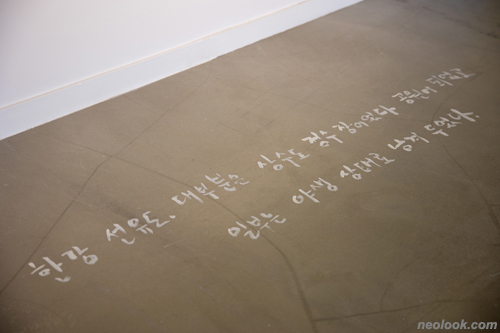 한강 선유도. 대부분은 상수도 정수장이었다 공원이 되었고
일부는 야생 상태로 남겨 두었다.
neolook.com